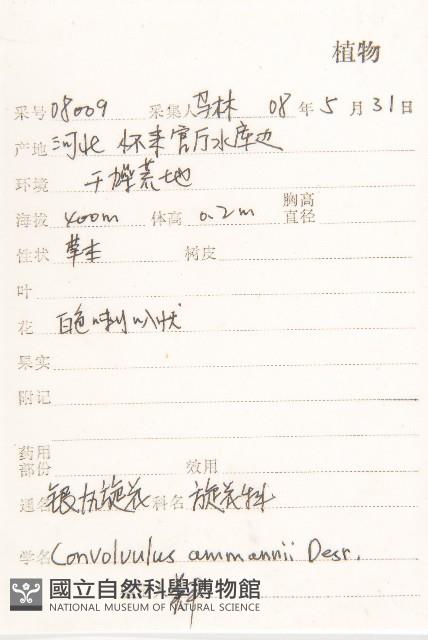 植物
采号 08009 采集人 马林 08 年 5 月 31 日
产地 河北 怀来官厅水库边
环境 干燥荒地
海拔 400m 体高 0.2m 胸高直径
性状 草本 树皮
叶
花 白色喇叭状
果实
附记
药用部份 效用
通名 银灰旋花 科名 旋花科
学名 Convolvulus ammannii Desr.
國立自然科學博物館
NATIONAL MUSEUM OF NATURAL SCIENCE